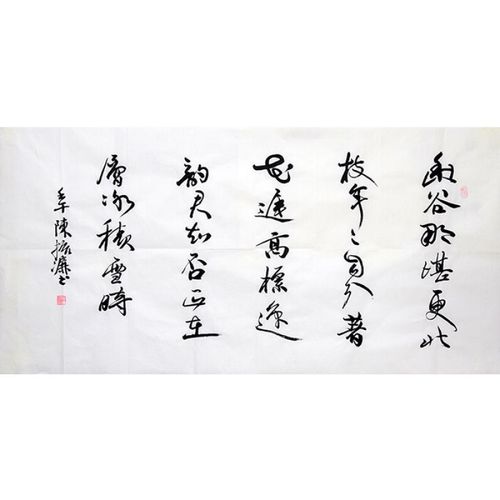 幽谷那堪更北
枝年々自分著
花遲高標逸
韵君知否正在
層冰積雪時
陳振濂书